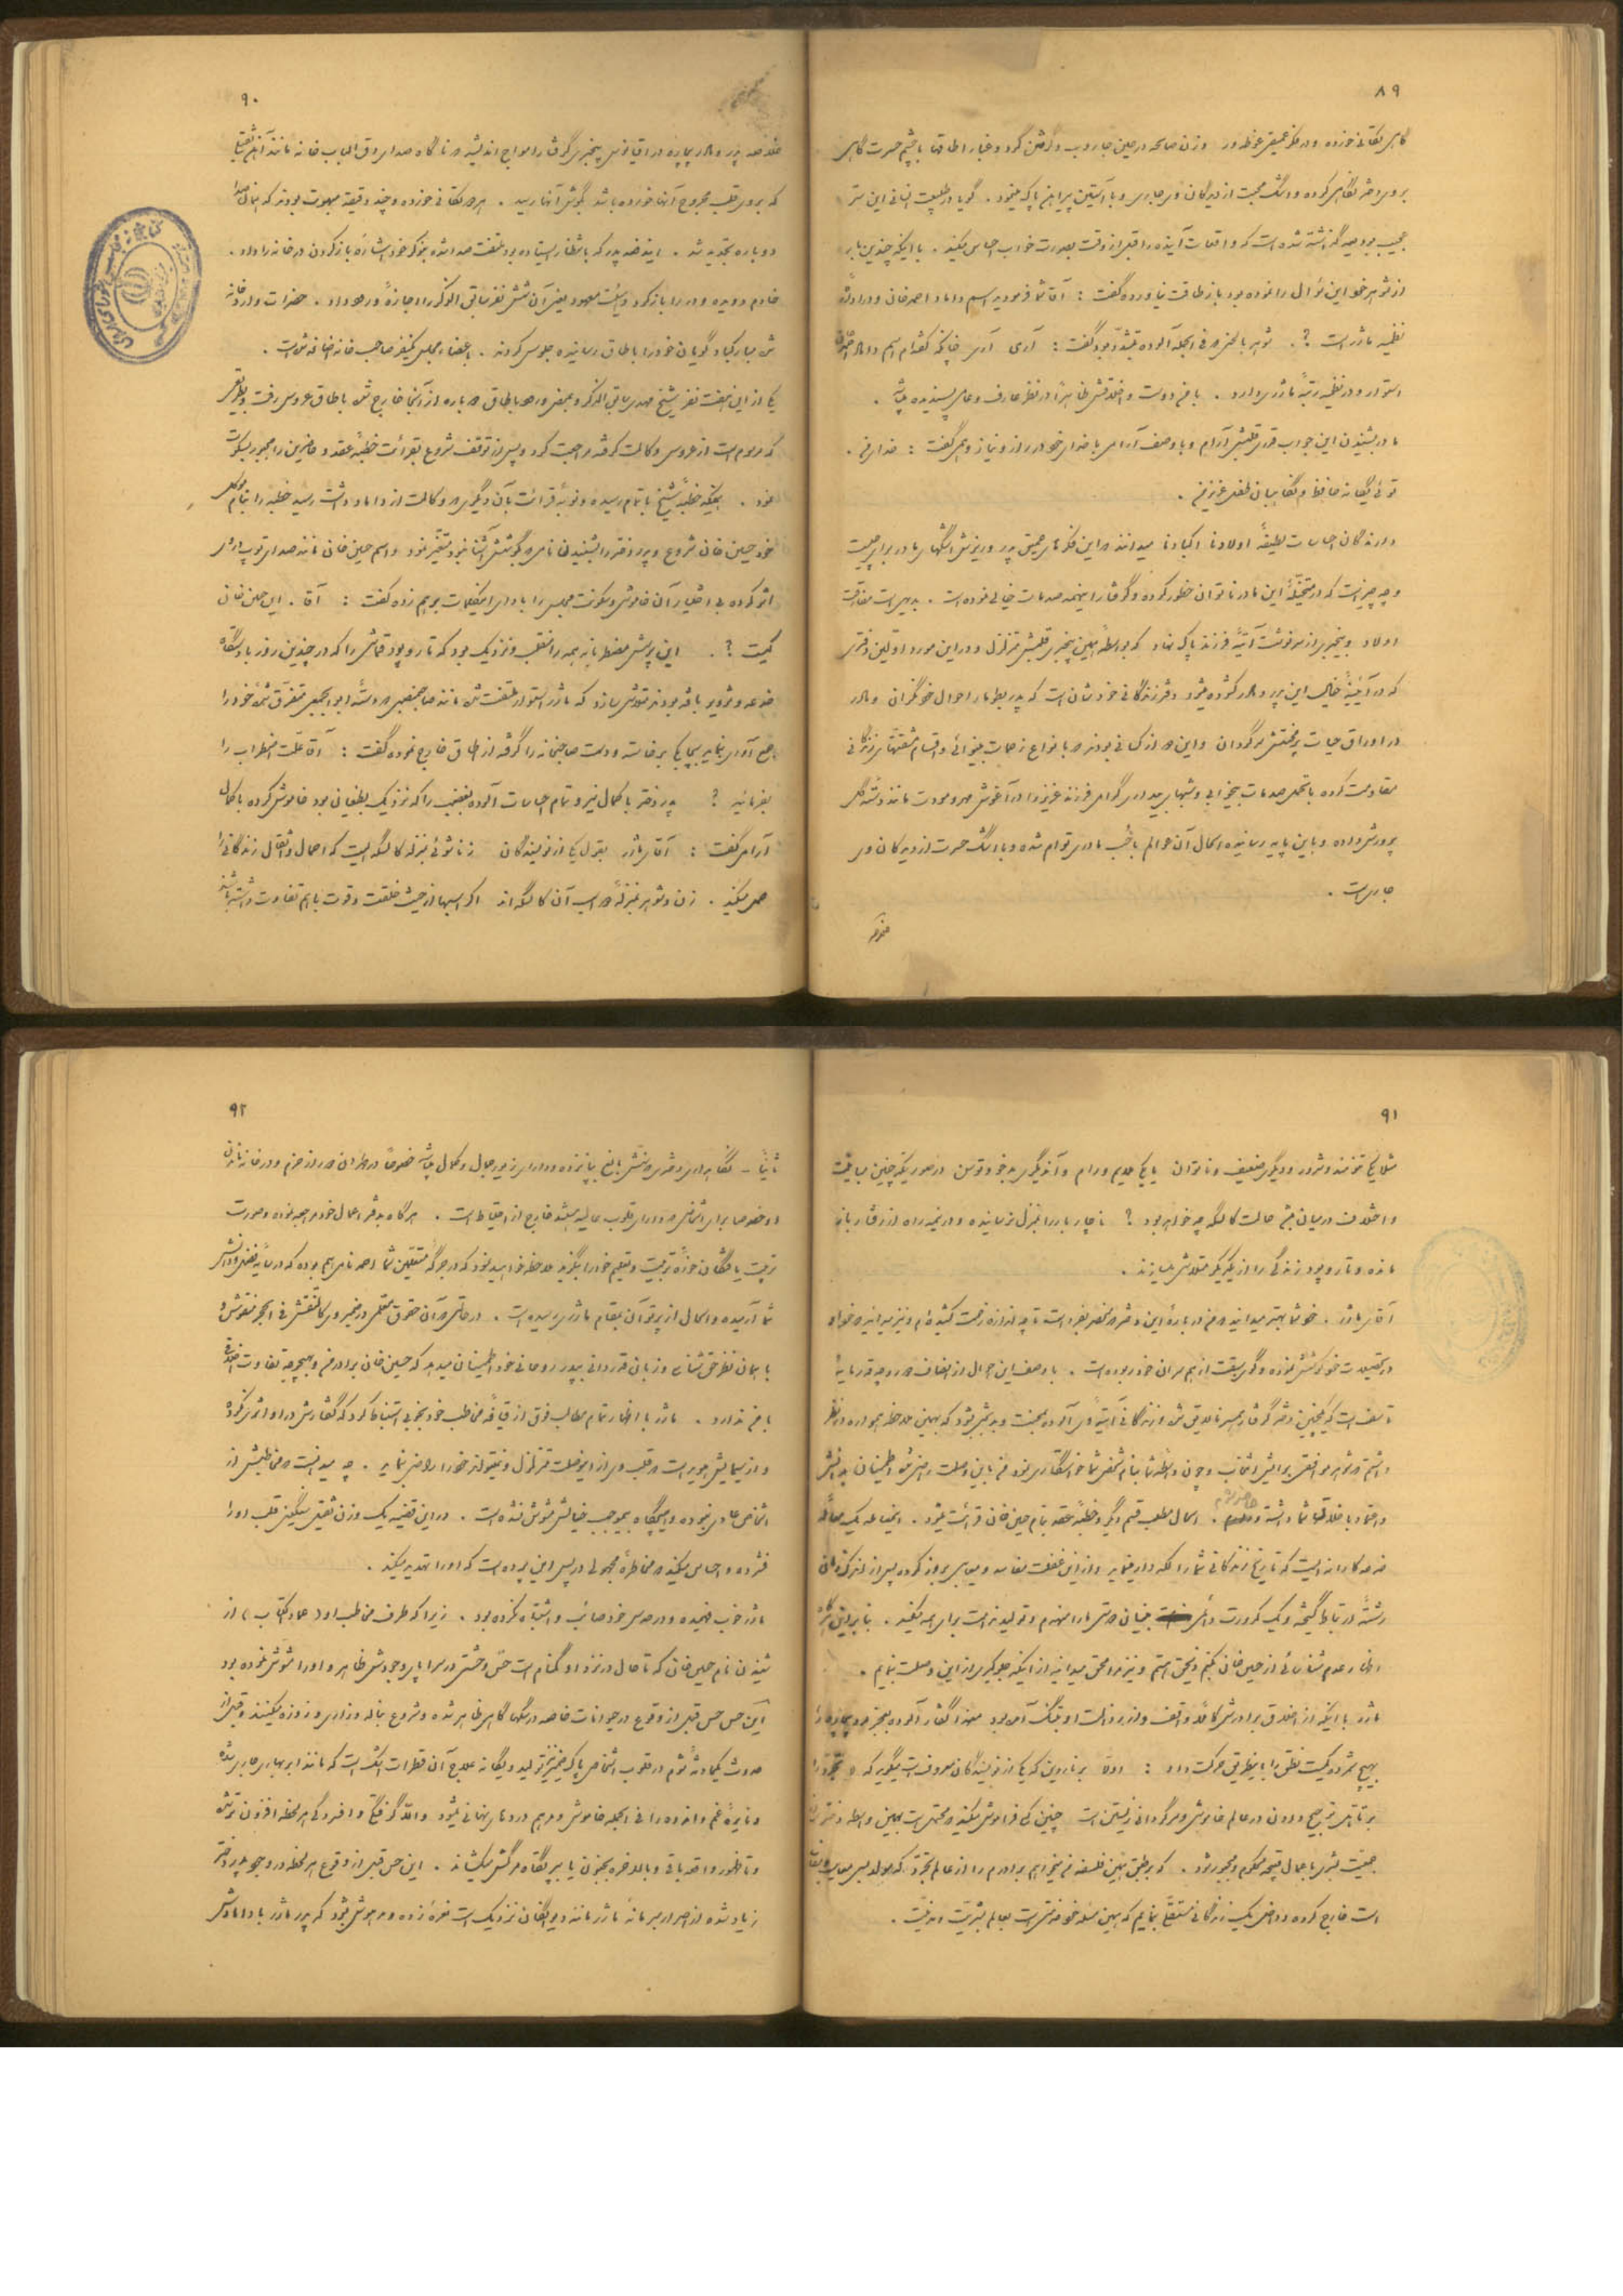 ۸۹
گاهی تکانی خورده و در فکر عمیقی غوطه‌ور و زن صالحه در حین جاروب و گرفتن گرد و غبار اطاقها با چشم حسرت گاهی
بروی دختر نگاهی کرده و اشک محبت از دیدگان وی جاری و با آستین پیراهن پاک مینمود . گویا در طبیعت انسانی این سر
عجیب بودیعه گذاشته شده است که واقعات آینده را قبل از وقت بصورت خواب احساس میکند . با اینکه چندین بار
از شوهر خود این سؤال را نموده بود باز طاقت نیاورده گفت : آقا شما فرمودید اسم داماد احمد خان و در اداره
نظمیه ماژر است ؟ . شوهر با لحنی که فی الجمله آلوده بتشدد بود گفت : آری آری چنانکه گفته‌ام اسم داماد احمد خان
استوار و در نظمیه رتبهٔ ماژری دارد . با من دوست و اخلاقش ظاهراً در نظر عارف و عامی پسندیده میباشد .
مادر بشنیدن این جواب قدری قلبش آرام و با وصف آرامی با خدای خود در راز و نیاز و همی گفت : خدای من .
توئی یگانه حافظ و نگاهبان طفل عزیز من .
دارندگان احساسات لطیفهٔ اولادنا اکبادنا میدانند که این فکرهای عمیق پدر و ریزش اشکهای مادر برای چیست
و چه چیز است که در متخیلهٔ این مادر ناتوان خطور کرده و گرفتار اینهمه صدمات خیالی نموده است . بدیهی است مفارقت
اولاد و بیخبری از سرنوشت آتیهٔ فرزند پاک نهاد که بواسطهٔ همین بیخبری قلبش متزلزل و در این مورد اولین دفتری
که در آئینهٔ خیال این پدر و مادر گشوده میشود دفتر زندگانی خودشان است که پدر بطومار احوال خود نگران و مادر
در اوراق حیات پرمحنتش سرگردان و این که از کسانی بودند که با انواع زحمات بینوائی و اقسام مشقتهای زندگانی
مقاومت کرده با تحمل صدمات بیخوابی و شبهای بیداری گرامی فرزند عزیز را در آغوش مهر و مودت مانند دستهٔ گل
پرورش داده و باین پایه رسانیده امحال آن عوالم با حب مادری توام شده و با اشک حسرت از دیدگان وی
جاریست .
۹۰
خلاصه پدر و مادر بیچاره در اقیانوس بیخبری گرفتار امواج اندیشه که ناگاه صدای دق الباب خانه مانند آهن ثقیلی
که بروی قلب مجروح آنها خورده باشد بگوش آنها رسید . هر دو تکانی خورده و چند دقیقه مبهوت بودند که همان صدا
دوباره تجدید شد . ایندفعه پدر که بانتظار ایستاده بود ملتفت صدا شده بنوکر خود اشارهٔ باز کردن در خانه را داد .
خادم دویده و در را باز کرد و هیئت معهود یعنی آن شش نفر سابق الذکر را اجازهٔ ورود داد . حضرات وارد خانه
شده مبارکباد گویان خود را باطاق رسانیده جلوس کردند . باعضاء مجلس یکنفر صاحب خانه اضافه شده است .
یکی از این هفت نفر شیخ مهدی سابق الذکر و بمحض ورود باطاق دوباره از آنجا خارج شده باطاق عروس رفت و بطوریکه
که مرسوم است از عروس وکالت گرفته مراجعت کرد و پس از توقف شروع بقرائت خطبهٔ عقد و حاضرین را مجبور بسکوت
نمود . همینکه خطبهٔ شیخ باتمام رسیده و نوبهٔ قرائت بآن دیگری که وکالت از داماد داشت رسید خطبه را بنام موکل
خود حسین خان شروع و پدر دختر را بشنیدن نامی که بگوشش آشنا نبود متغیر نمود و اسم حسین خان مانند صدای توپ در او
اثر کرده بی اختیار آن خاموشی و سکونت مجلس را با ادای اینکلمات برهم زده گفت : آقا . این حسین خان
کیست ؟ . این پرسش مضطربانه همه را منقلب و نزدیک بود که تار و پود قماشی را که در چندین روز با دستگاه
خدعه و تزویر بافته بودند متلاشی سازد که ماژر استوار ملتفت شده مانند صاحبمنصبی که دستهٔ ابوابجمعی متفرق شدهٔ خود را
جمع آوری نماید بچابکی برخاسته و دست صاحبخانه را گرفته از اطاق خارج نموده گفت : آقا علت اضطراب را
بفرمائید ؟ پدر دختر با کمال نیرو تمام احساسات آلوده بغضب را که نزدیک بطغیان بود خاموش کرده با کمال
آرامی گفت : آقای ماژر بقول یکی از نویسندگان زناشوئی بمنزله کالسکه ایست که احمال و اثقال زندگانی را
حمل میکند . زن و شوهر بمنزلهٔ دو اسب آن کالسکه‌اند اگر اسبها از حیث خلقت و قوت با هم تفاوت داشته باشند
۹۱
مثلا یکی تنومند و شرور و دیگری ضعیف و ناتوان یا یکی ملایم و رام و آندیگری بدخو و توسن در صورتیکه چنین مباینت
و اختلاف در میان باشد حالت کالسکه چه خواهد بود ؟ ناچار بار را بمنزل نرسانیده و در نیمه راه از رفتار باز
مانده و تار و پود زندگی را از یکدیگر متلاشی میسازند .
آقای ماژر . خود شما بهتر میدانید که من در بارهٔ این دختر که منحصر بفرد است تا چه اندازه زحمت کشیده‌ام و نیز میدانید که خود او
در تحصیلات خود کوشش نموده و گوی سبقت از همسران خود ربوده است . با وصف این احوال از انصاف دور و چه قدر مایهٔ
تاسف است که یکچنین دختر گرفتار همسر نالایقی شده و زندگانی آتیهٔ وی آلوده بمحنت و بدبختی شود که بهمین ملاحظه همواره در نظر
داشتم که شوهر موافقی برایش انتخاب و چون واسطه شما بنام شخص شما خواستگاری نمود من باین وصلت راضی شده و اطمینان بدانش
و اعتماد باخلاق شما داشته حاضر شدم . امحال مطلب قسم دیگر و خطبهٔ عقد بنام حسین خان قرائت میشود . اینمعامله یک معاملهٔ
خدعه کارانه ایست که تاریخ زندگانی شما را لکه دار مینماید و از این غفلت مفاسد و معایبی بروز کرده پس از اندک زمانی
رشتهٔ ارتباط گسیخته و یک کدورت دائمی بنیان دوستی ما را منهدم و تولید ندامت برای همه میکند . بنابراین اگر
اظهار عدم شناسائی از حسین خان بکنم ذیحق هستم و نیز مرا محق میدانید از اینکه جلوگیری از این وصلت بنمایم .
ماژر با اینکه از اخلاق برادرش کاملاً واقف و از رذالت او بتنگ آمده بود معهذا گفتار آلوده بعجز مرد بیچاره را
بهیچ شمرده کمیت نطق را باینطریق حرکت داد : اولا برناردین که یکی از نویسندگان معروفست میگوید که « تجرد را
بر تاهل ترجیح دادن در عالم خاموشی و سرگردانی زیستن است چنین کس فراموش میکند که محتمل است بهمین واسطه دختر
جمعیت بشری باعمال قبیحه محکوم و مجبور شود . که بر طبق همین فلسفه من میخواهم برادرم را از عالم تجرد که مولد بسی معایب و مفاسد
است خارج کرده و داخل یک زندگانی مستقلی بنمایم که همین مسئله خود خدمتی است بعالم بشریت و مدنیت .
۹۲
ثانیاً - نگاهداری دختری که سنش بالغ بپانزده و دارای زیور جمال و کمال میباشد خصوصاً در طهران دور از حزم و در خانه ماندن
او خصوصا برای اشخاصی که دارای قلوب سالمه میباشند خارج از احتیاط است . هرگاه بدفتر اعمال خود مراجعه نموده و صورت
تربیت یافتگان حوزهٔ تربیت و تعلیم خود را بنگرید ملاحظه خواهید نمود که در جرگهٔ متعلمین شما احمد نامی هم بوده که در سایهٔ فضل و دانش
شما آرمیده و امحال از پرتو آن بمقام ماژری رسیده است . در حالتی که آن حقوق معلمی در ضمیر وی کاملاً منقش فی الحجر منقوش و
با همان نظر حق شناس و زبان قدردانی بپدر روحانی خود اطمینان میدهد که حسین خان برادر من و بهیچوجه تفاوت اخلاقی
با من ندارد . ماژر با اظهار تمام مطالب فوق از قیافهٔ مخاطب خود بخوبی استنباط کرد که گفتارش در او اثری نکرده
و از سیمایش هویداست که قلب وی از اینوصلت متزلزل و نمیتواند خود را راضی نماید . چه میدانست که مخاطبش از
اشخاص عادی نبوده و هیچگاه بی‌موجب خیالش مشوش نشده است . در این قضیه یک وزن ثقیلی سنگین قلب او را
فشرده و احساس میکند که مخاطرهٔ مجهولی در پس این پرده است که او را تهدید میکند .
ماژر خوب فهمیده و در حدس خود صائب و اشتباه نکرده بود . زیرا که طرف مخاطب او ( عماد الکتاب ) از
شنیدن نام حسین خان که تا حال در نزد او گمنام است حس وحشتی در سراپای وجودش ظاهر و او را مشوش نموده بود
این حس حس قبل از وقوع در حیوانات خاصه در سگها گاهی ظاهر شده و شروع بناله و زاری و زوزه میکنند و قبل از
حدوث یکحادثهٔ شوم در قلوب اشخاص پاک ضمیر نیز تولید و یگانه علاج آن قطرات اشک است که مانند ابر بهاری جاری شده
و نایرهٔ غم و اندوه را فی الجمله خاموش و مرهم دردهای نهانی میشود والا گرفتگی و افسردگی هر لحظه افزون تر شده
و تا ظهور واقعه باقی و بالاخره بجنون یا بپرتگاه مرگش میکشاند . این حس قبل از وقوع هر لحظه در وجود پدر دختر
زیاد شده از اصرار مبرمانهٔ ماژر مانند دیوانگان نزدیک است نعره زده و مدهوش شود که پدر ماژر با دامادش